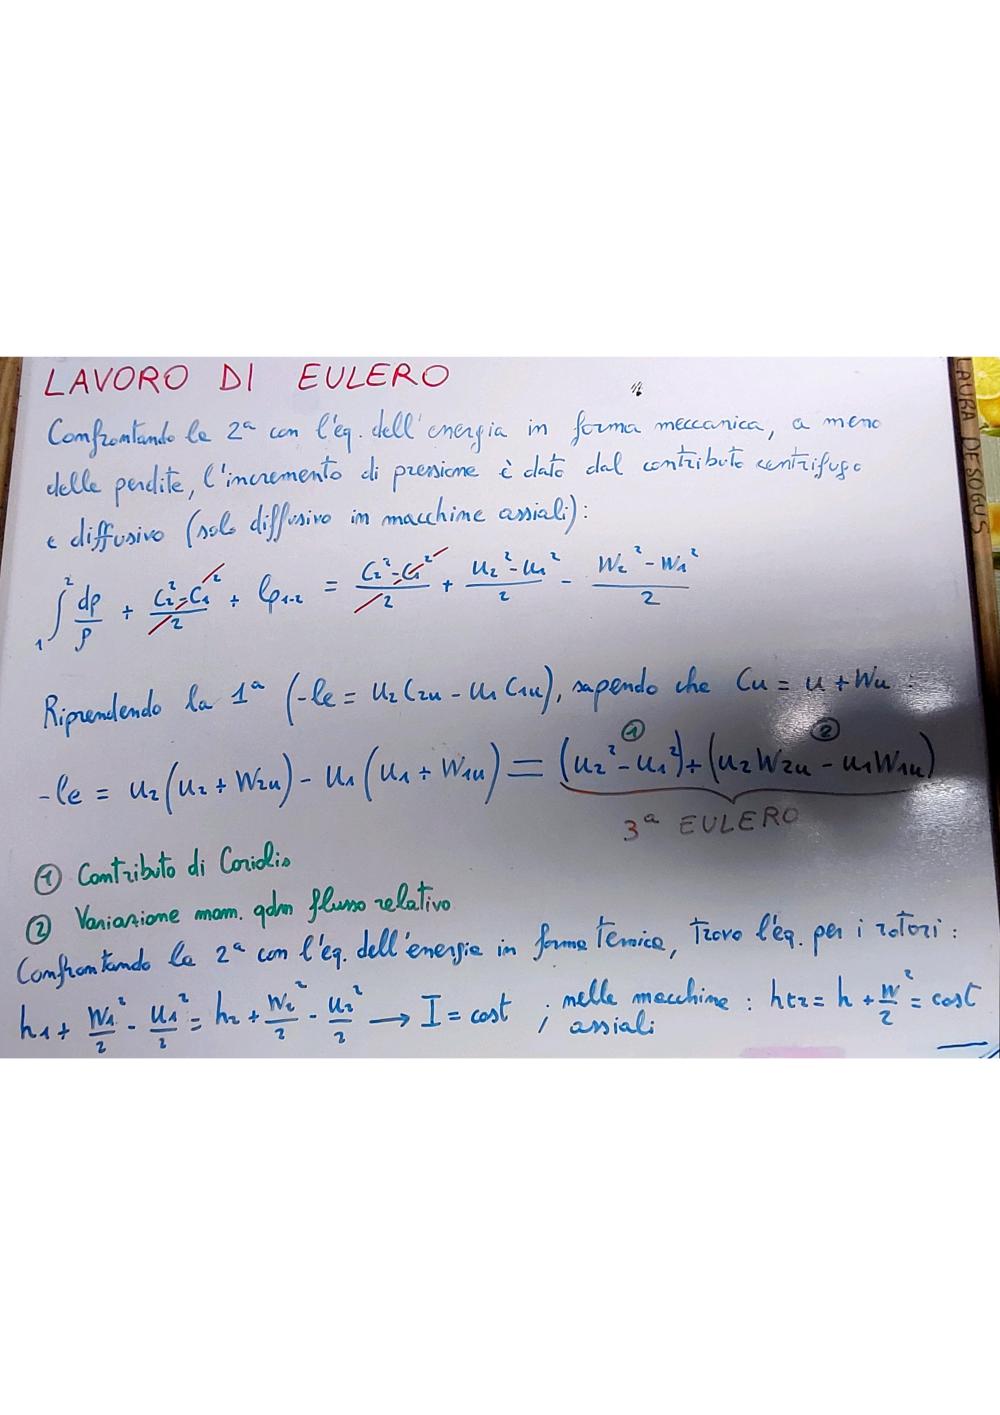 LAVORO DI EULERO
Confrontando la 2ª con l'eq. dell'energia in forma meccanica, a meno
delle perdite, l'incremento di pressione è dato dal contributo centrifugo
e diffusivo (solo diffusivo in macchine assiali):
₁∫² dp/ρ + (C₂² - C₁²)/2 + lp₁₋₂ = (C₂² - C₁²)/2 + (U₂² - U₁²)/2 - (W₂² - W₁²)/2
Riprendendo la 1ª (-le = U₂C₂u - U₁C₁u), sapendo che Cu = U + Wu :
① ②
-le = U₂(U₂ + W₂u) - U₁(U₁ + W₁u) = (U₂² - U₁²) + (U₂W₂u - U₁W₁u)
3ª EULERO
① Contributo di Coriolis
② Variazione mom. qdm flusso relativo
Confrontando la 2ª con l'eq. dell'energia in forma termica, trovo l'eq. per i rotori :
h₁ + W₁²/2 - U₁²/2 = h₂ + W₂²/2 - U₂²/2 → I = cost ; nelle macchine assiali : htr = h + W²/2 = cost
LAURA DESOGUS